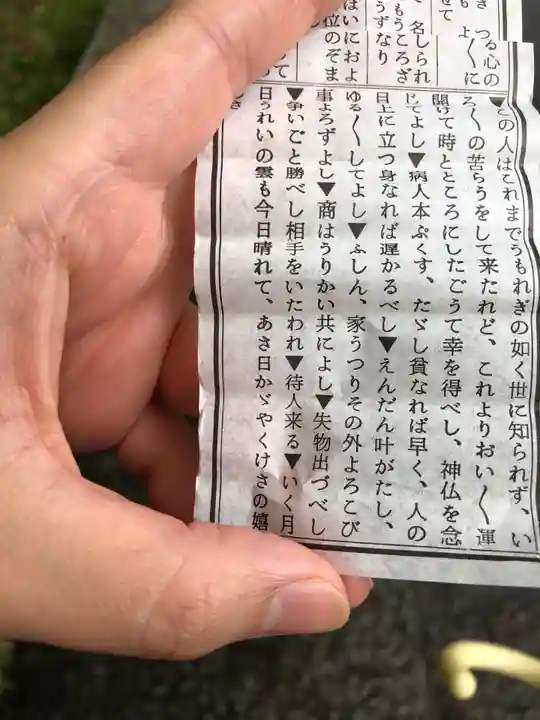 つる心の
よ〱に
名しられ
もうころざ
うずなり
はいによ
位のぞま
▼この人はこれまでうもれぎの如く世に知られず、い
ろ〱の苦らうをして来たれど、これよりおい〱運
開けて時とところにしたごうて幸を得べし、神仏を念
じてよし▼病人本ぷくす、たゞし貧なれば早く、人の
目上に立つ身なれば遅かるべし▼えんだん叶がたし、
ゆる〱してよし▼ふしん、家うつりその外よろこび
事よろずよし▼商はうりかい共によし▼失物出づべし
▼争いごと勝べし相手をいたわれ▼待人来る▼いく月
日うれいの雲も今日晴れて、あさ日かゞやくけさの嬉
しさ